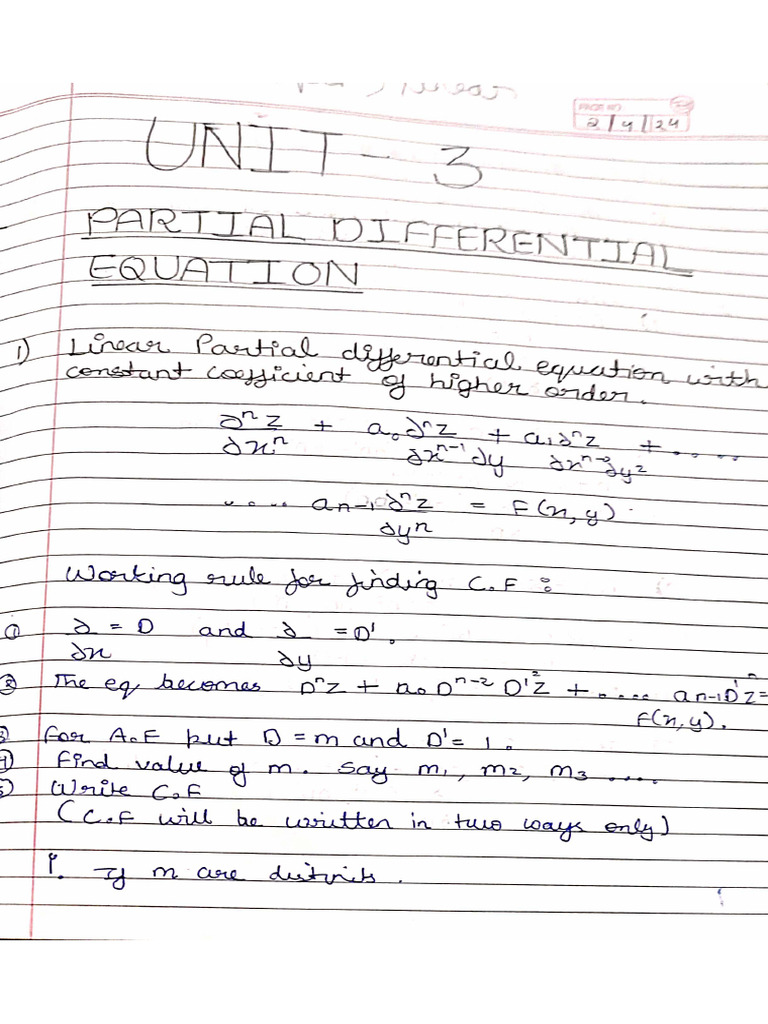 PAGE NO
2/4/24
UNIT - 3
PARTIAL DIFFERENTIAL
EQUATION
1) Linear Partial differential equation with
constant coefficient of higher order.
∂ⁿz/∂xⁿ + a₀∂ⁿz/∂xⁿ⁻¹∂y + a₁∂ⁿz/∂xⁿ⁻²∂y² + .....
..... aₙ₋₁∂ⁿz/∂yⁿ = F(x,y).
Working rule for finding C.F :
① ∂/∂x = D and ∂/∂y = D'.
② The eq becomes Dⁿz + a₀Dⁿ⁻²D'²z + ..... aₙ₋₁D'ⁿz =
F(x,y).
③ for A.E put D = m and D' = 1.
④ Find value of m. say m₁, m₂, m₃ ....
⑤ Write C.F
(C.F will be written in two ways only)
i. If m are distinits.